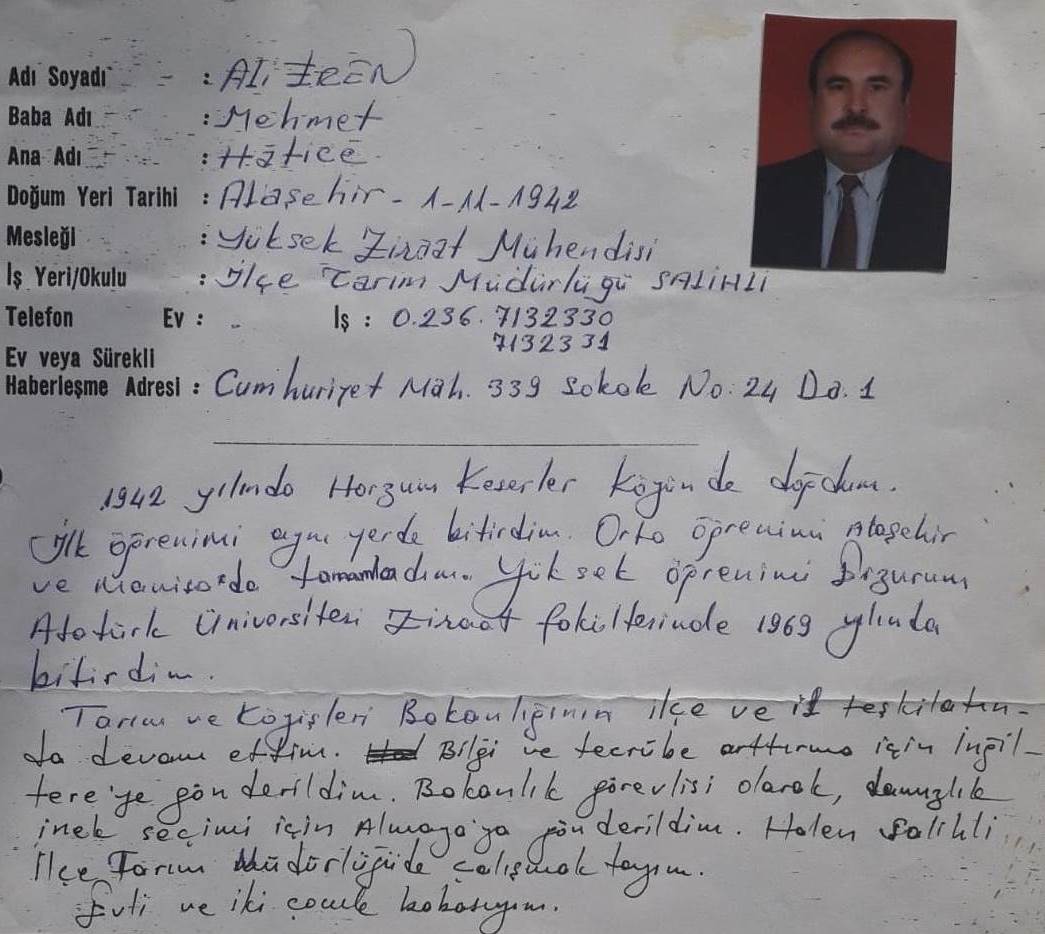 Adı Soyadı : ALİ EREN
Baba Adı : Mehmet
Ana Adı : Hatice
Doğum Yeri Tarihi : Alaşehir - 1-11-1942
Mesleği : Yüksek Ziraat Mühendisi
İş Yeri/Okulu : İlçe Tarım Müdürlüğü SALİHLİ
Telefon Ev : - İş : 0.236.7132330
7132331
Ev veya Sürekli
Haberleşme Adresi : Cumhuriyet Mah. 339 Sokak No: 24 Da. 1
1942 yılında Horzum Keserler Köyünde doğdum.
İlk öğrenimi aynı yerde bitirdim. Orta öğrenimi Alaşehir
ve Manisa'da tamamladım. Yüksek öğrenimi Erzurum
Atatürk Üniversitesi Ziraat fakültesinde 1969 yılında
bitirdim.
Tarım ve Köyişleri Bakanlığının ilçe ve il teşkilatın-
da devam ettim. Bilgi ve tecrübe arttırma için İngil-
tere'ye gönderildim. Bakanlık görevlisi olarak, damızlık
inek seçimi için Almaya'ya gönderildim. Halen Salihli
İlçe Tarım Müdürlüğüde çalışmaktayım.
Evli ve iki çocuk babasıyım.